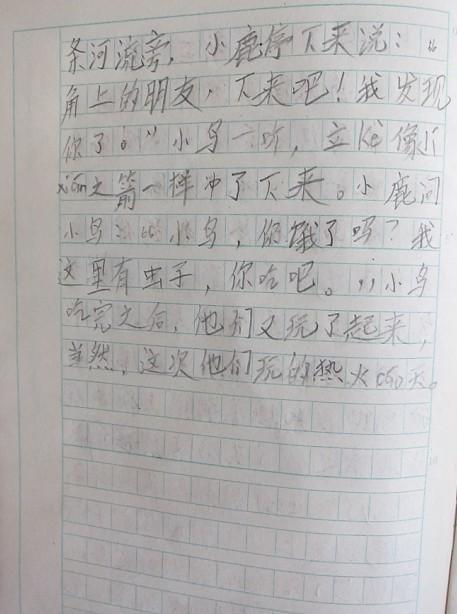 条河流旁，小鹿停下来说：“
角上的朋友，下来吧！我发现
你了。”小鸟一听，立kè像小
xián之箭一样冲了下来。小鹿问
小鸟：“小鸟，你饿了吗？我
这里有虫子，你吃吧。”小鸟
吃完之后，他们又玩了起来，
当然，这次他们玩的热火cáo天。